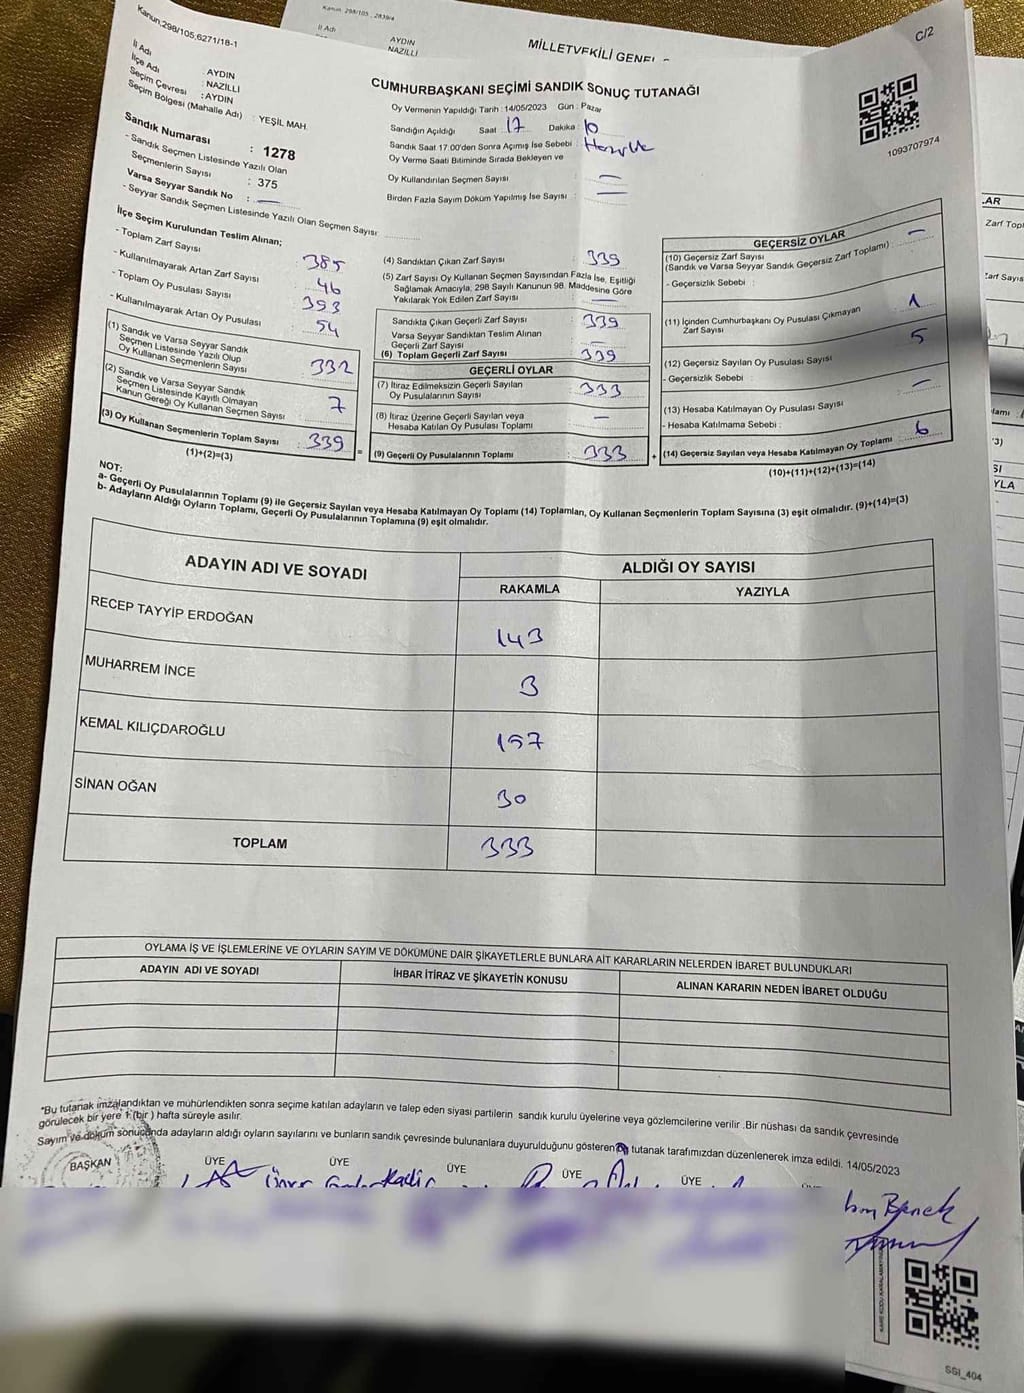 Kanun 298/105, 2839/4
İl Adı
AYDIN
NAZİLLİ
MİLLETVEKİLİ GENEL
Kanun,298/105,6271/18-1
C/2
İl Adı : AYDIN
İlçe Adı : NAZİLLİ
Seçim Çevresi : AYDIN
Seçim Bölgesi (Mahalle Adı) : YEŞİL MAH.
CUMHURBAŞKANI SEÇİMİ SANDIK SONUÇ TUTANAĞI
Oy Vermenin Yapıldığı Tarih : 14/05/2023 Gün : Pazar
Sandığın Açıldığı Saat 17 Dakika 10
Sandık Saat 17.00'den Sonra Açılmış İse Sebebi :
Oy Verme Saati Bitiminde Sırada Bekleyen ve
Oy Kullandırılan Seçmen Sayısı : —
Birden Fazla Sayım Döküm Yapılmış İse Sayısı : —
1093707974
Sandık Numarası : 1278
- Sandık Seçmen Listesinde Yazılı Olan
Seçmenlerin Sayısı : 375
Varsa Seyyar Sandık No : —
- Seyyar Sandık Seçmen Listesinde Yazılı Olan Seçmen Sayısı
İlçe Seçim Kurulundan Teslim Alınan;
- Toplam Zarf Sayısı 385
- Kullanılmayarak Artan Zarf Sayısı 46
- Toplam Oy Pusulası Sayısı 393
- Kullanılmayarak Artan Oy Pusulası 54
(1) Sandık ve Varsa Seyyar Sandık
Seçmen Listesinde Yazılı Olup
Oy Kullanan Seçmenlerin Sayısı 332
(2) Sandık ve Varsa Seyyar Sandık
Seçmen Listesinde Kayıtlı Olmayan
Kanun Gereği Oy Kullanan Seçmen Sayısı 7
(3) Oy Kullanan Seçmenlerin Toplam Sayısı : 339
(1)+(2)=(3)
(4) Sandıktan Çıkan Zarf Sayısı 339
(5) Zarf Sayısı Oy Kullanan Seçmen Sayısından Fazla İse, Eşitliği
Sağlamak Amacıyla; 298 Sayılı Kanunun 98. Maddesine Göre
Yakılarak Yok Edilen Zarf Sayısı —
Sandıkta Çıkan Geçerli Zarf Sayısı : 339
Varsa Seyyar Sandıktan Teslim Alınan
Geçerli Zarf Sayısı —
(6) Toplam Geçerli Zarf Sayısı 339
GEÇERLİ OYLAR
(7) İtiraz Edilmeksizin Geçerli Sayılan
Oy Pusulalarının Sayısı 333
(8) İtiraz Üzerine Geçerli Sayılan veya
Hesaba Katılan Oy Pusulası Toplamı —
= (9) Geçerli Oy Pusulalarının Toplamı 333 +
GEÇERSİZ OYLAR
(10) Geçersiz Zarf Sayısı
(Sandık ve Varsa Seyyar Sandık Geçersiz Zarf Toplamı) : —
- Geçersizlik Sebebi :
(11) İçinden Cumhurbaşkanı Oy Pusulası Çıkmayan
Zarf Sayısı 1
(12) Geçersiz Sayılan Oy Pusulası Sayısı 5
- Geçersizlik Sebebi :
(13) Hesaba Katılmayan Oy Pusulası Sayısı —
- Hesaba Katılmama Sebebi :
(14) Geçersiz Sayılan veya Hesaba Katılmayan Oy Toplamı 6
(10)+(11)+(12)+(13)=(14)
NOT:
a- Geçerli Oy Pusulalarının Toplamı (9) ile Geçersiz Sayılan veya Hesaba Katılmayan Oy Toplamı (14) Toplamları, Oy Kullanan Seçmenlerin Toplam Sayısına (3) eşit olmalıdır. (9)+(14)=(3)
b- Adayların Aldığı Oyların Toplamı, Geçerli Oy Pusulalarının Toplamına (9) eşit olmalıdır.
ADAYIN ADI VE SOYADI
ALDIĞI OY SAYISI
RAKAMLA YAZIYLA
RECEP TAYYİP ERDOĞAN 143
MUHARREM İNCE 3
KEMAL KILIÇDAROĞLU 157
SİNAN OĞAN 30
TOPLAM 333
OYLAMA İŞ VE İŞLEMLERİNE VE OYLARIN SAYIM VE DÖKÜMÜNE DAİR ŞİKAYETLERLE BUNLARA AİT KARARLARIN NELERDEN İBARET BULUNDUKLARI
ADAYIN ADI VE SOYADI
İHBAR İTİRAZ VE ŞİKAYETİN KONUSU
ALINAN KARARIN NEDEN İBARET OLDUĞU
*Bu tutanak imzalandıktan ve mühürlendikten sonra seçime katılan adayların ve talep eden siyasi partilerin sandık kurulu üyelerine veya gözlemcilerine verilir .Bir nüshası da sandık çevresinde
görülecek bir yere 1 (bir ) hafta süreyle asılır.
Sayım ve döküm sonucunda adayların aldığı oyların sayılarını ve bunların sandık çevresinde bulunanlara duyurulduğunu gösteren tutanak tarafımızdan düzenlenerek imza edildi. 14/05/2023
BAŞKAN ÜYE ÜYE ÜYE ÜYE ÜYE
SSI_404